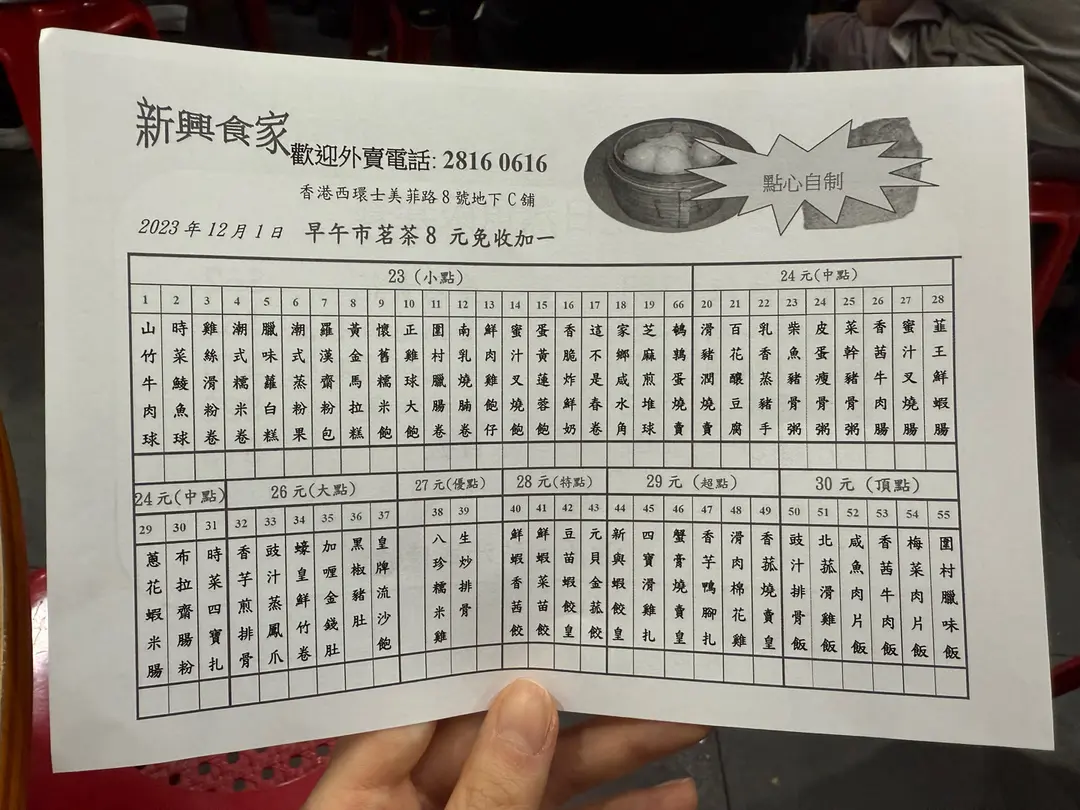 新興食家
歡迎外賣電話: 2816 0616
香港西環士美菲路8號地下C舖
點心自制
2023年12月1日 早午市茗茶8 元免收加一
23 (小點)
24 元(中點)
1 山竹牛肉球
2 時菜鯪魚球
3 雞絲滑粉卷
4 潮式糯米卷
5 臘味蘿白糕
6 潮式蒸粉果
7 羅漢齋粉包
8 黃金馬拉糕
9 懷舊糯米飽
10 正雞球大飽
11 圍村臘腸卷
12 南乳燒腩卷
13 鮮肉雞飽仔
14 蜜汁叉燒飽
15 蛋黃蓮蓉飽
16 香脆炸鮮奶
17 這不是春卷
18 家鄉咸水角
19 芝麻煎堆球
66 鵪鶉蛋燒賣
20 滑豬潤燒賣
21 百花釀豆腐
22 乳香蒸豬手
23 柴魚豬骨粥
24 皮蛋瘦骨粥
25 菜幹豬骨粥
26 香茜牛肉腸
27 蜜汁叉燒腸
28 韭王鮮蝦腸
24 元(中點)
26 元(大點)
27 元(優點)
28 元(特點)
29 元 (超點)
30 元 (頂點)
29 蔥花蝦米腸
30 布拉齋腸粉
31 時菜四寶扎
32 香芋煎排骨
33 豉汁蒸鳳爪
34 蠔皇鮮竹卷
35 加喱金錢肚
36 黑椒豬肚
37 皇牌流沙飽
38 八珍糯米雞
39 生炒排骨
40 鮮蝦香茜餃
41 鮮蝦菜苗餃
42 豆苗蝦餃皇
43 元貝金菰餃
44 新興蝦餃皇
45 四寶滑雞扎
46 蟹膏燒賣皇
47 香芋鴨腳扎
48 滑肉棉花雞
49 香菰燒賣皇
50 豉汁排骨飯
51 北菰滑雞飯
52 咸魚肉片飯
53 香茜牛肉飯
54 梅菜肉片飯
55 圍村臘味飯